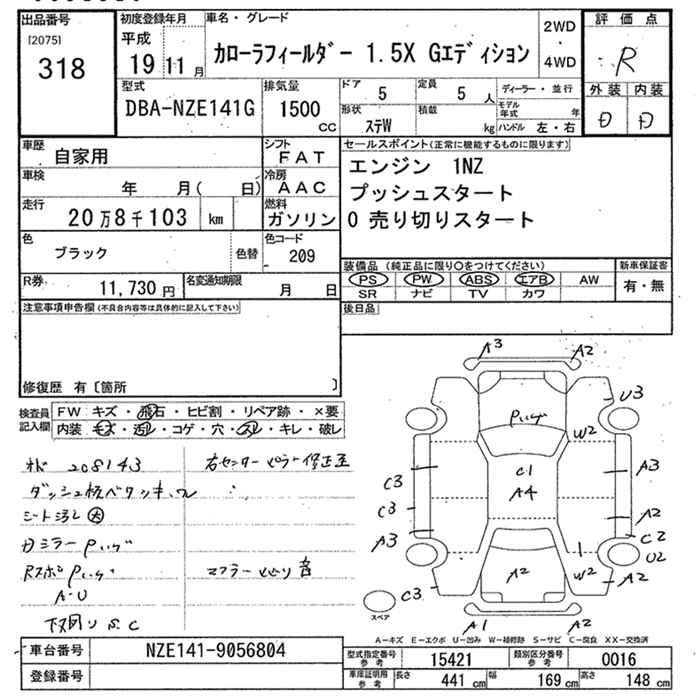 出品番号
[2075]
318
初度登録年月
平成
19 11 月
車名・グレード
カローラフィールダー 1.5X Gエディション
2WD
・
4WD
評価点
R
外装 内装
D D
型式
DBA-NZE141G
排気量
1500
CC
ドア
5
定員
5 人
形状
ステW
積載
kg
ディーラー・並行
モデル年式 年
ハンドル 左・右
車歴
自家用
シフト
FAT
車検
年 月( 日)
冷房
AAC
走行
20万8千103 km
燃料
ガソリン
色
ブラック
色替
色コード
209
R券
11,730 円
名変通知期限
月 日
セールスポイント(正常に機能するものに限ります)
エンジン 1NZ
プッシュスタート
0 売り切りスタート
装備品 (純正品に限り○をつけてください)
PS PW ABS エアB AW
SR ナビ TV カワ
新車保証書
有・無
注意事項申告欄(不具合内容等は具体的に記入して下さい)
後日品
修復歴 有〔箇所 〕
検査員
記入欄
FW キズ・飛石・ヒビ割・リペア跡・×要
内装 キズ・汚レ・コゲ・穴・スレ・キレ・破レ
208143
右センターピラー修正歪
シート汚レ 大
マフラー 音
A3
A2
U3
W2
C1
A4
A3
C3
C3
A2
A3
C2
U2
A2
W2
A2
C3
A1
A2
スペア
A-キズ E-エクボ U-凹み W-補修跡 S-サビ C-腐食 XX-交換済
車台番号
NZE141-9056804
登録番号
型式指定番号
参考
15421
類別区分番号
参考
0016
車庫証明用
参考
長さ
441 cm
幅
169 cm
高さ
148 cm